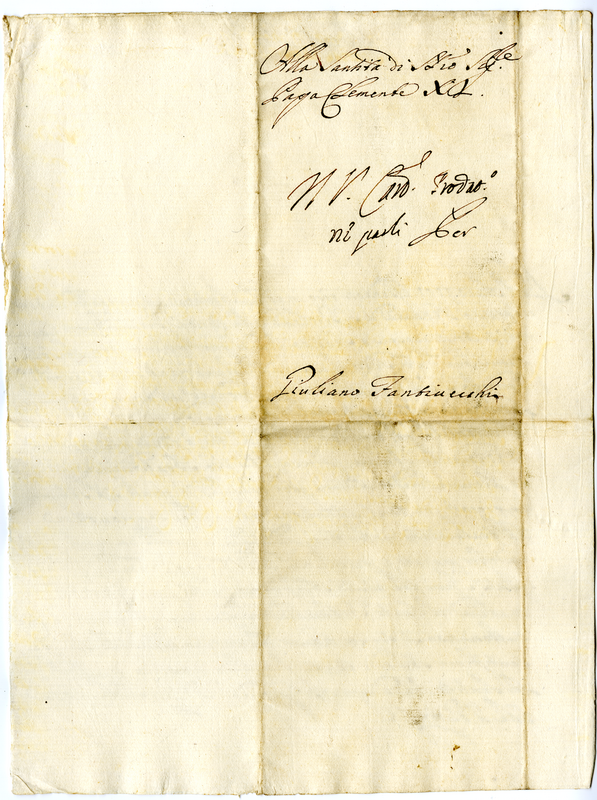 Alla Santità di Nro Sig.re
Papa Clemente XI.
Card.l Prodat.o
ne parli
Giuliano Fantivecchi